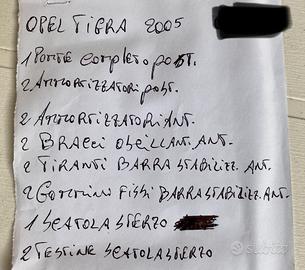 OPEL TIGRA 2005
1 PONTE COMPLETO POST.
2 AMMORTIZZATORI POST.
2 AMMORTIZZATORI ANT.
2 BRACCI OSCILLANT. ANT.
2 TIRANTI BARRA STABILIZZ. ANT.
2 GOMMINI FISSI BARRA STABILIZZ. ANT.
1 SCATOLA STERZO
2 TESTINE SCATOLA STERZO
subito